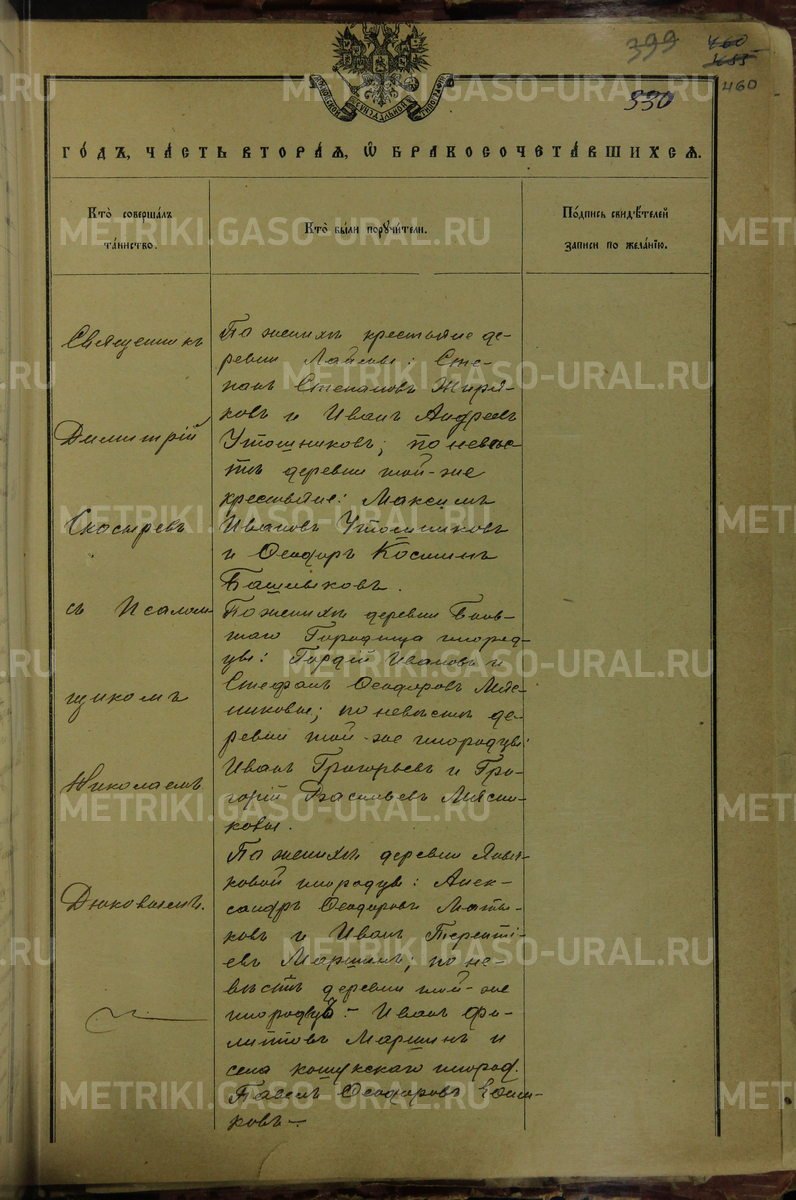 399
460
460
330
ГО́ДЪ, ЧА́СТЬ ВТОРА́Ѧ, Ѡ҆ БРАКОСОЧЕТА́ВШИХСѦ.
Кто̀ соверша́лъ
та́инство.
Кто̀ бы́ли порꙋчи́тели.
По́дпись свидѣ́телей
записи по жела́нїю.
Священникъ
Димитрій
Скосыревъ
съ Псалом-
щикомъ
Николаемъ
По женихѣ крестьяне де-
ревни : Сте-
панъ Степановъ Жиря-
ковъ и Иванъ Андреевъ
Утошниковъ; по невѣс-
тѣ деревни той-же
крестьяне: Максимъ
Ивановъ Утошниковъ
и Ѳеодоръ Косминъ
По женихѣ деревни
Городища инород-
цы: Гордій Ивановъ и
Стефанъ Ѳеодоровъ Мяс-
никовы; по невѣстѣ де-
ревни той-же инородцы:
Иванъ Григорьевъ и Гри-
горій Васильевъ Мясни-
ковы.
По женихѣ деревни
инородцы: Алек-
сандръ Ѳеодоровъ
и Иванъ Теренті-
евъ Маршинъ; по не-
вѣстѣ деревни той-же
инородцы: Иванъ Фи-
липповъ Маршинъ и
села кошукскаго инород.
Павелъ Ѳеодоровъ
METRIKI.GASO-URAL.RU